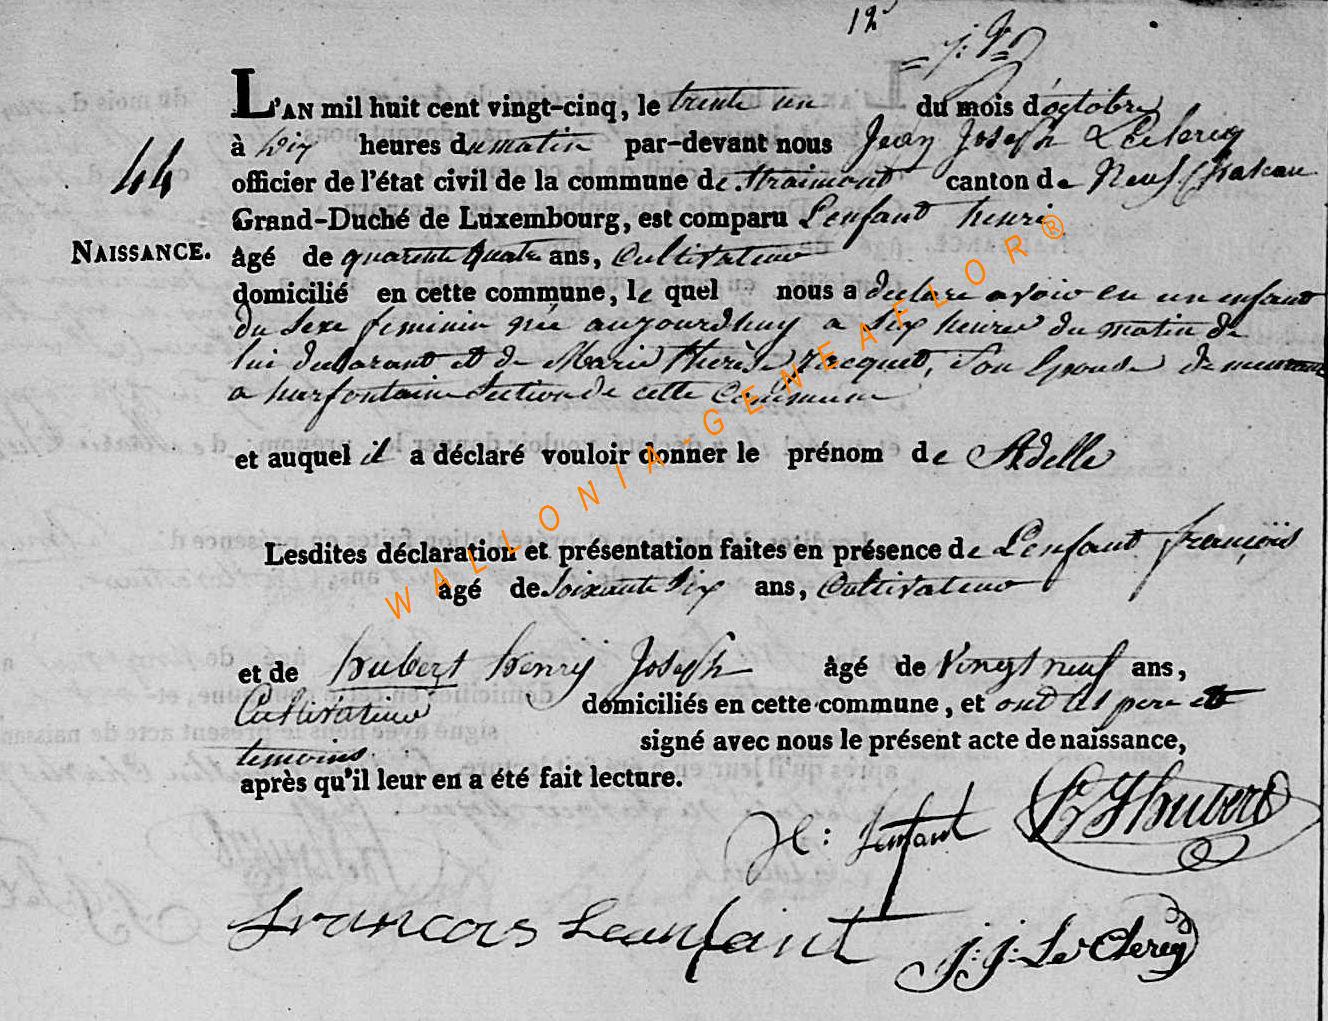 12
L'AN mil huit cent vingt-cinq, le trente un du mois d'octobre
à Dix heures du matin par-devant nous Jean Joseph Leclercq
44
officier de l'état civil de la commune de Straimont canton de Neufchateau
Grand-Duché de Luxembourg, est comparu Lenfant henri
NAISSANCE.
âgé de quarente quatre ans, Cultivateur
domicilié en cette commune, le quel nous a declare avoir eu un enfant
du sexe feminin née aujourdhuy a six heures du matin de
lui declarant et de Marie Therèse Jacquet, son Epouse demeurant
a hurfontaine Section de cette Commune
et auquel il a déclaré vouloir donner le prénom de Adelle
Lesdites déclaration et présentation faites en présence de Lenfant françois
âgé de Soixante Six ans, Cultivateur
et de hubert henry Joseph âgé de Vingt neuf ans,
Cultivateur domiciliés en cette commune, et ont les pere et
temoins signé avec nous le présent acte de naissance,
après qu'il leur en a été fait lecture.
H: Lenfant
hubert
francois Leanfaint
J: J: Le Clercq
WALLONIA-GENEAFLOR®